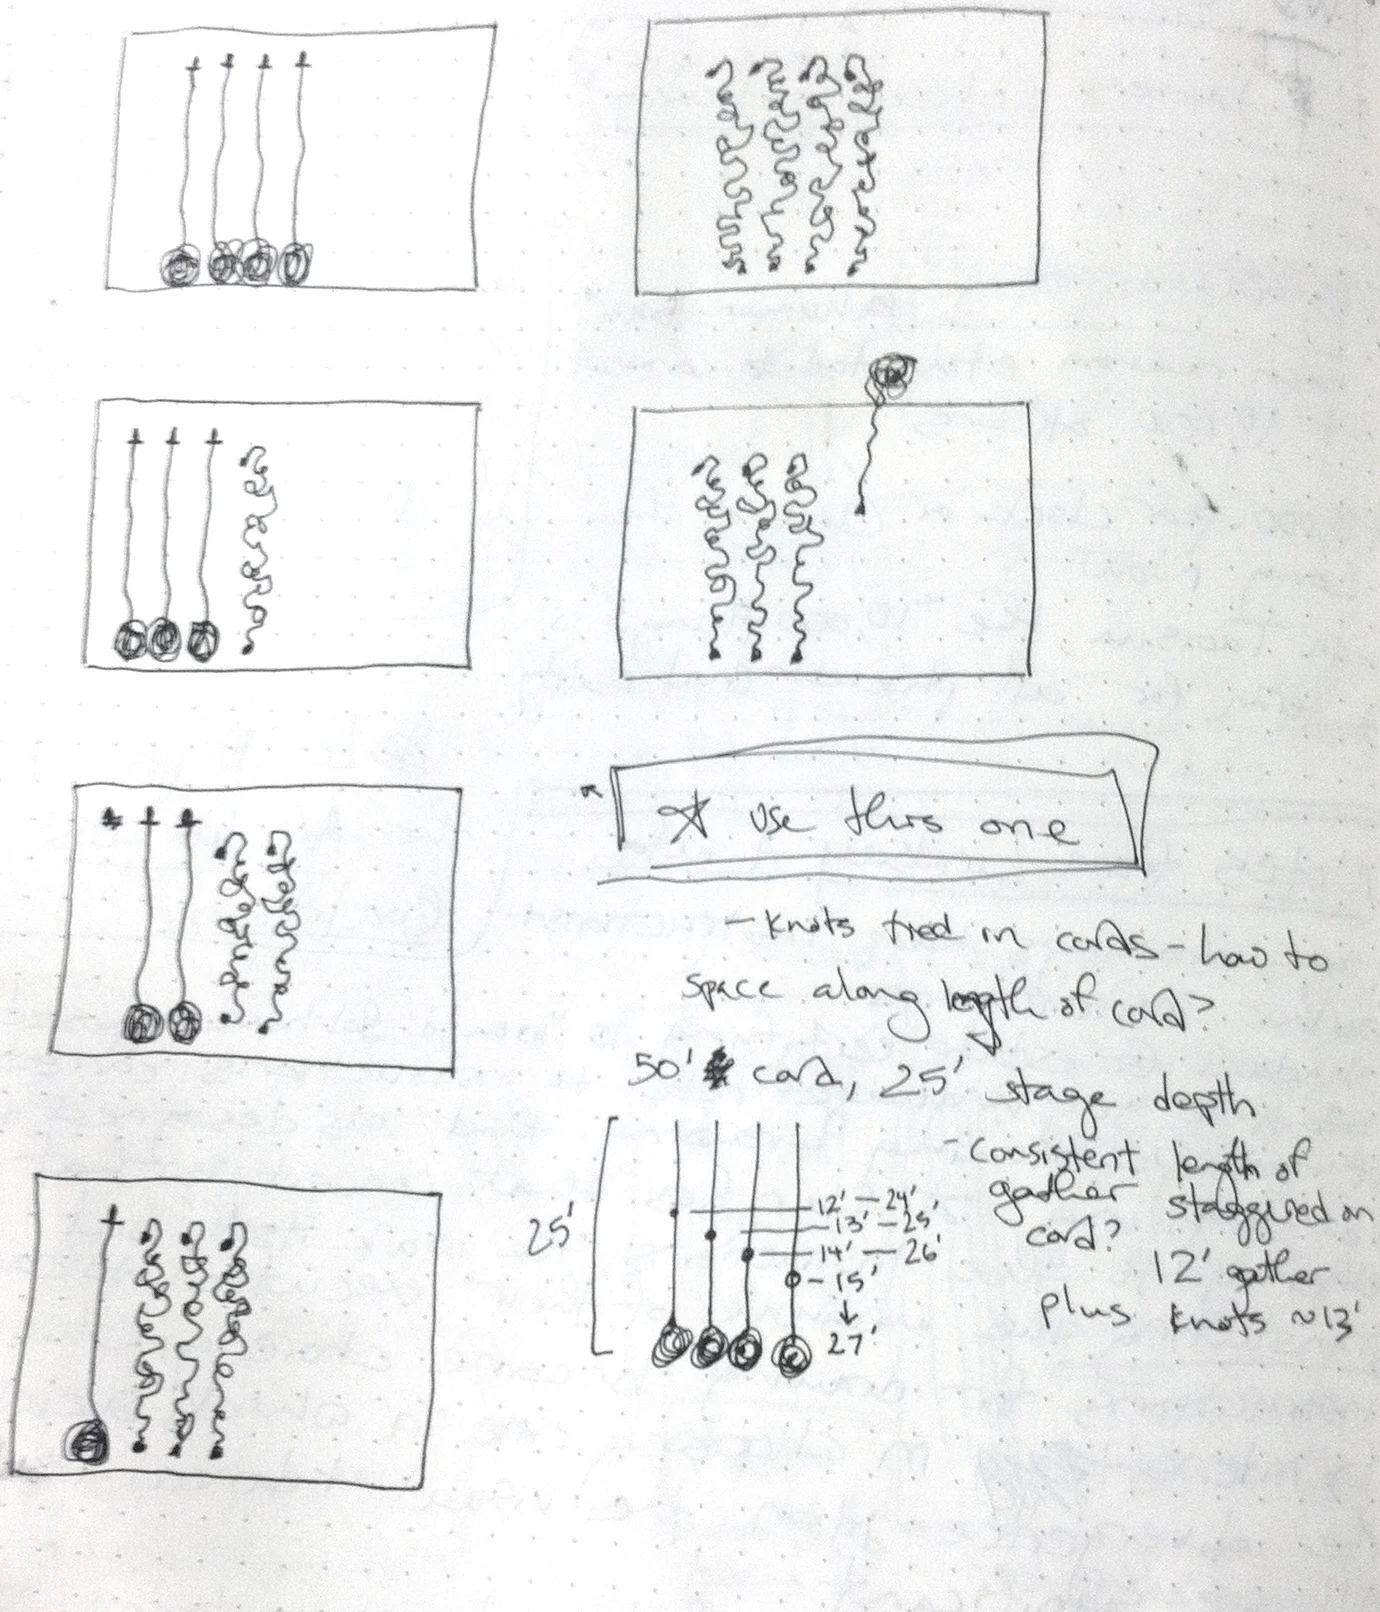 ☆ use this one
- knots tied in cords - how to
space along length of cord?
50' cord, 25' stage depth
25'
12' - 24'
13' - 25'
14' - 26'
- 15'
↓
27'
- consistent length of
gather staggered on
cord?
12' gather
plus knots ~13'